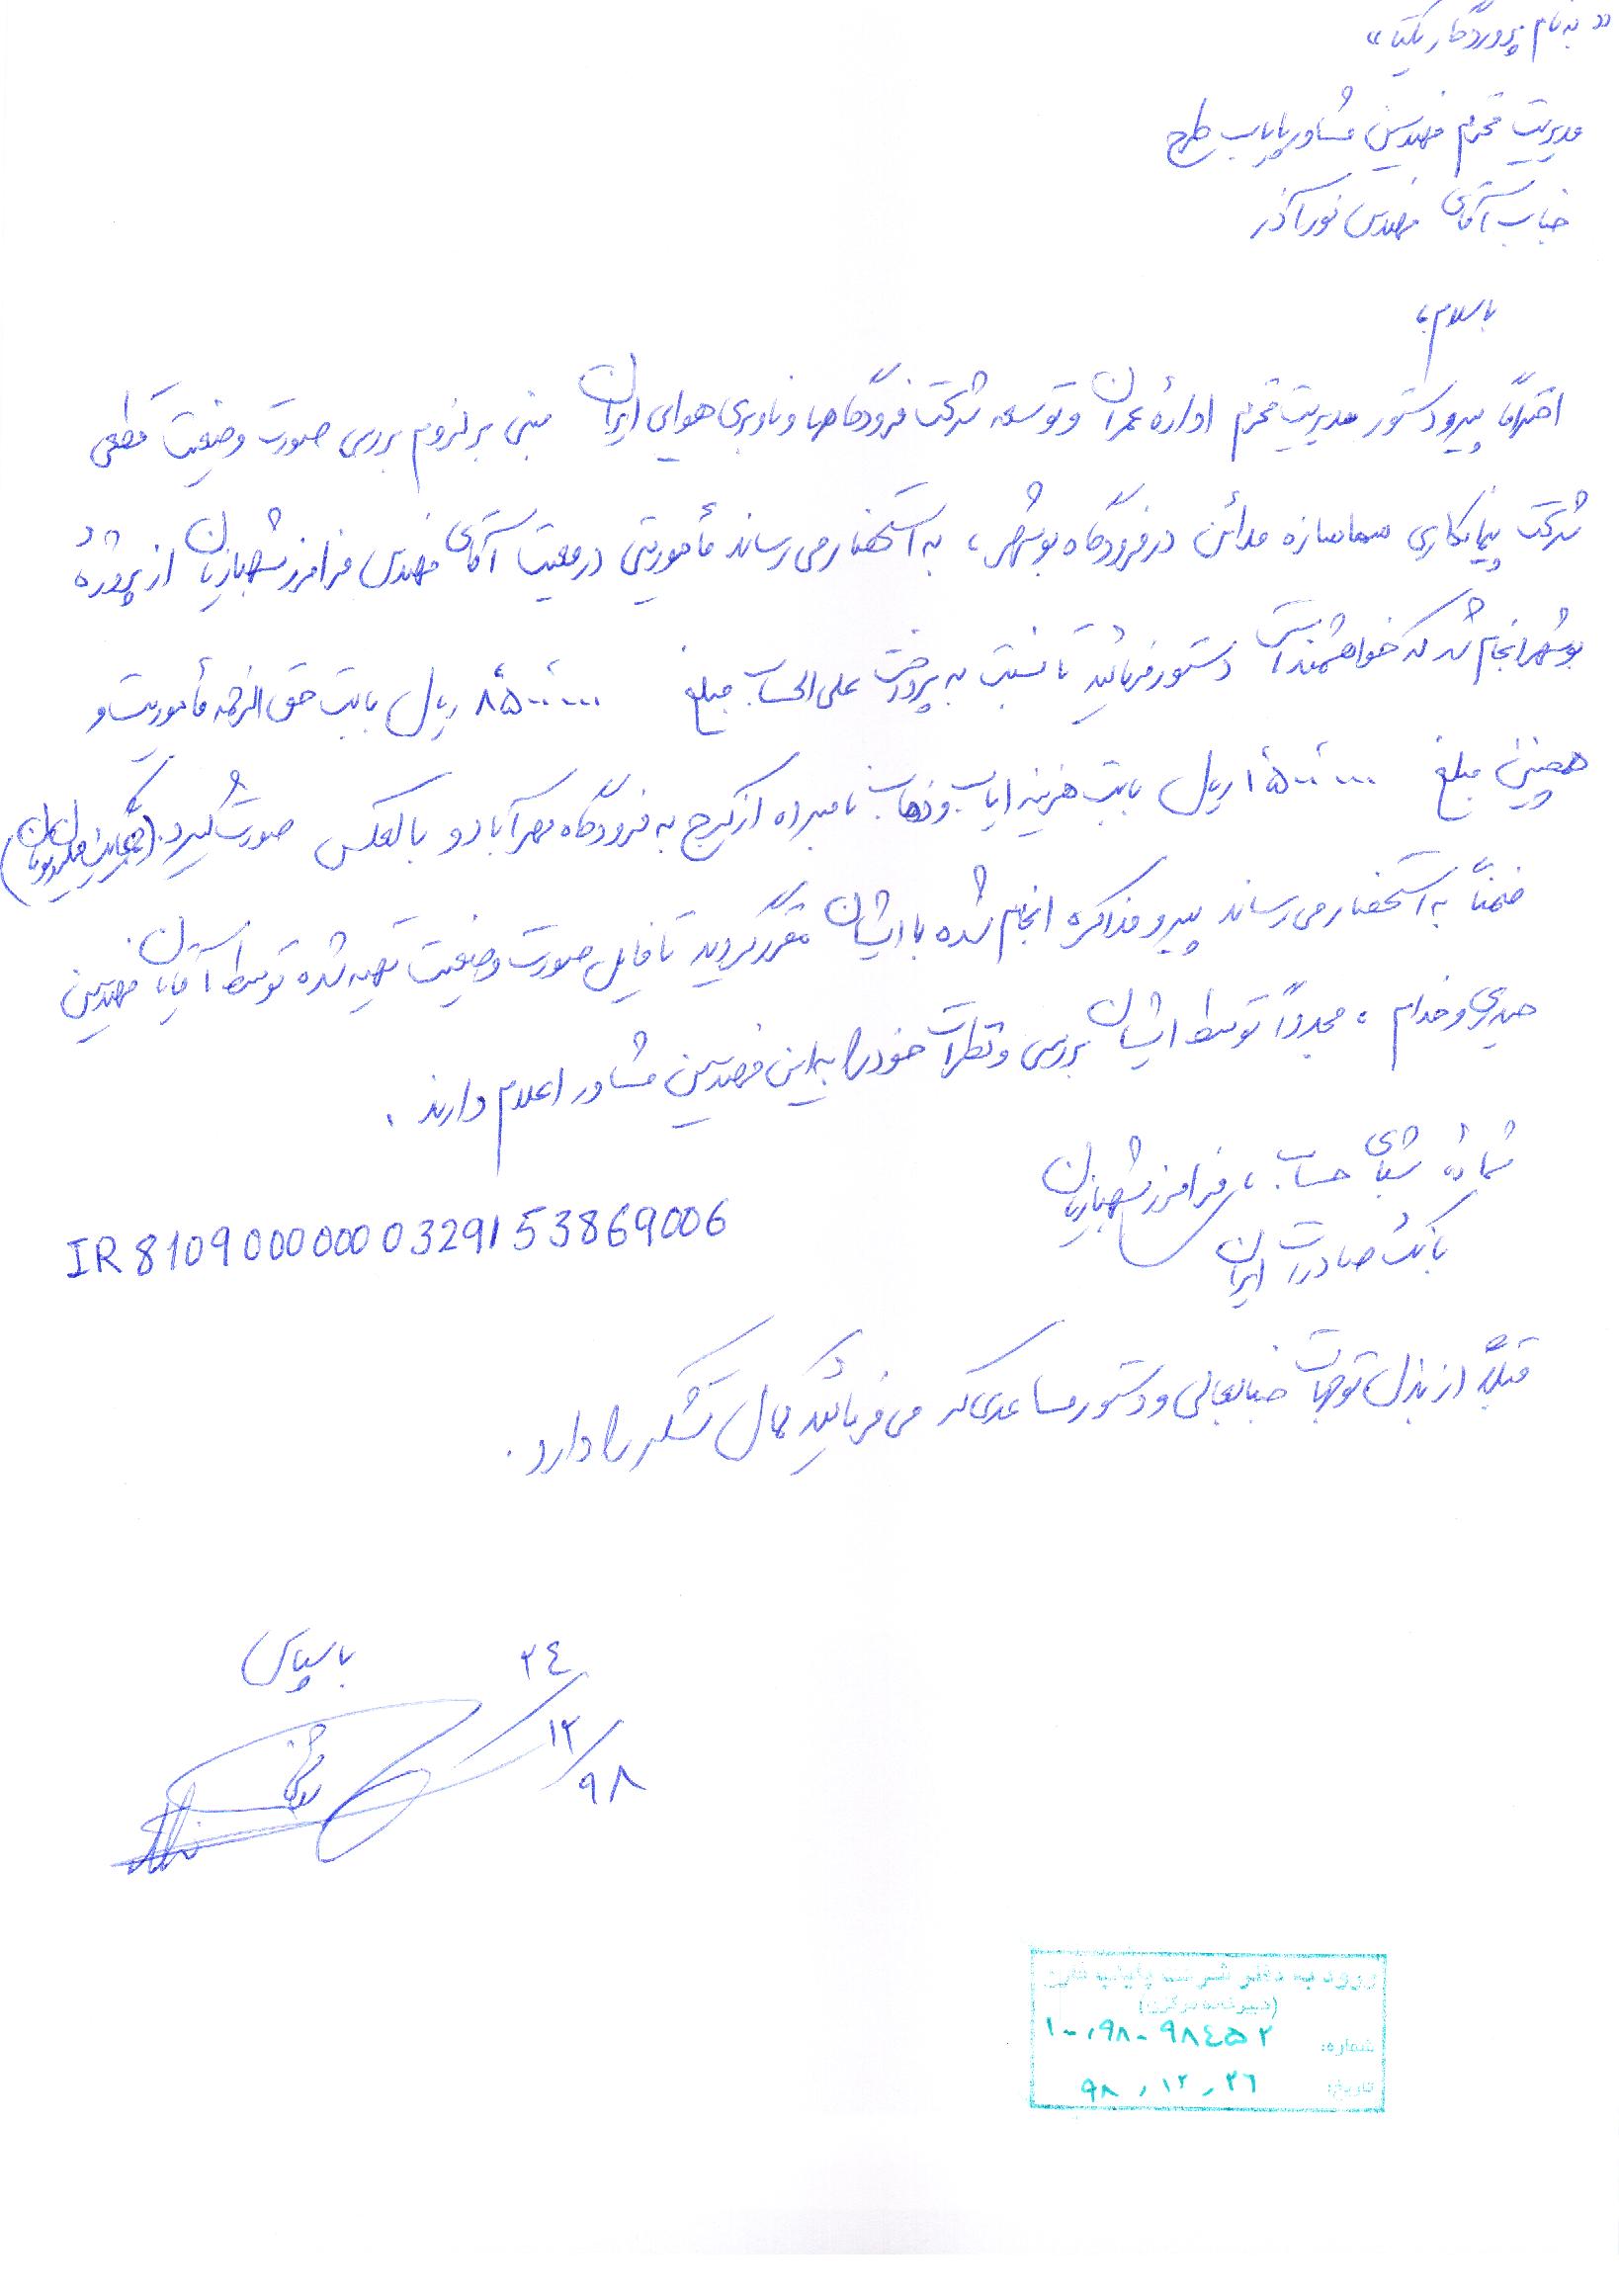 «به نام پروردگار یکتا»
مدیریت محترم مهندسین مشاور پایاب طرح
جناب آقای مهندس نورآذر
با سلام،
احتراماً پیرو دستور مدیریت محترم ادارهٔ عمران و توسعه شرکت فرودگاهها و ناوبری هوایی ایران مبنی بر لزوم بررسی صورت وضعیت قطعی
شرکت پیمانکاری سماسازه مدائن در فرودگاه بوشهر، به استحضار می رساند مأموریتی در معیت آقای مهندس فرامرز شهبازیان از پروژهٔ
بوشهر انجام شد که خواهشمند است دستور فرمائید تا نسبت به پرداخت علی الحساب مبلغ ۸٬۵۰۰٬۰۰۰ ریال بابت حق الزحمه مأموریت و
همچنین مبلغ ۱٬۵۰۰٬۰۰۰ ریال بابت هزینه ایاب و ذهاب نامبرده از کرج به فرودگاه مهرآباد و بالعکس صورت گیرد.
ضمناً به استحضار می رساند پیرو مذاکره انجام شده با ایشان مقرر گردید تا فایل صورت وضعیت تهیه شده توسط آقایان مهندسین
حیدری و خدام، مجدداً توسط ایشان بررسی و نظرات خود را به این مهندسین مشاور اعلام دارند.
شمارهٔ شبای حساب، فرامرز شهبازیان
بانک صادرات ایران
IR810900000000329153869006
قبلاً از بذل توجهات جنابعالی و دستور مساعدی که می فرمائید کمال تشکر را دارد.
با سپاس
۲۴/۱۲/۹۸
ورود به دفتر شرکت پایاب طرح
(دبیرخانه مرکزی)
شماره: ۱۰۰۹۸-۹۸۴۵۲
تاریخ: ۹۸,۱۲,۲۶